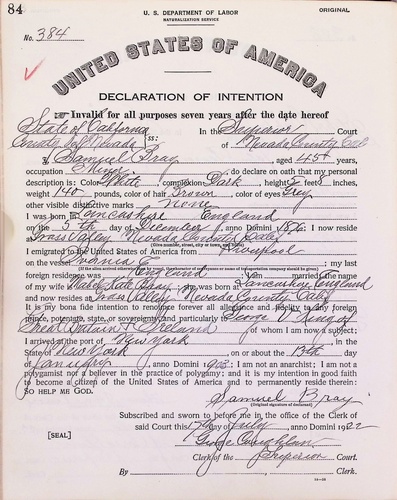 84
U. S. DEPARTMENT OF LABOR
NATURALIZATION SERVICE
ORIGINAL
No. 384
UNITED STATES OF AMERICA
DECLARATION OF INTENTION
Invalid for all purposes seven years after the date hereof
State of California
ss: In the Superior Court
County of Nevada of Nevada County Cal
I, Samuel Bray, aged 45 years,
occupation Miner, do declare on oath that my personal
description is: Color White, complexion Dark, height 5 feet 8 inches,
weight 140 pounds, color of hair Brown, color of eyes Grey
other visible distinctive marks none
I was born in Lancashire England
on the 5th day of December, anno Domini 1876; I now reside
at Grass Valley Nevada County Calif
(Give number, street, city or town, and State.)
I emigrated to the United States of America from Liverpool
on the vessel; my last
(If the alien arrived otherwise than by vessel, the character of conveyance or name of transportation company should be given.)
foreign residence was England; I am married; the name
of my wife is Bray; she was born at Lancashire England
and now resides at Grass Valley Nevada County Calif
It is my bona fide intention to renounce forever all allegiance and fidelity to any foreign
prince, potentate, state, or sovereignty, and particularly to George V King of
Great Britain & Ireland, of whom I am now a subject;
I arrived at the port of New York, in the
State of New York, on or about the 13th day
of January, anno Domini 1905; I am not an anarchist; I am not a
polygamist nor a believer in the practice of polygamy; and it is my intention in good faith
to become a citizen of the United States of America and to permanently reside therein:
SO HELP ME GOD.
Samuel Bray
(Original signature of declarant.)
Subscribed and sworn to before me in the office of the Clerk of
said Court this 17th day of July, anno Domini 1922
[SEAL]
George
Clerk of the Superior Court.
By, Clerk.